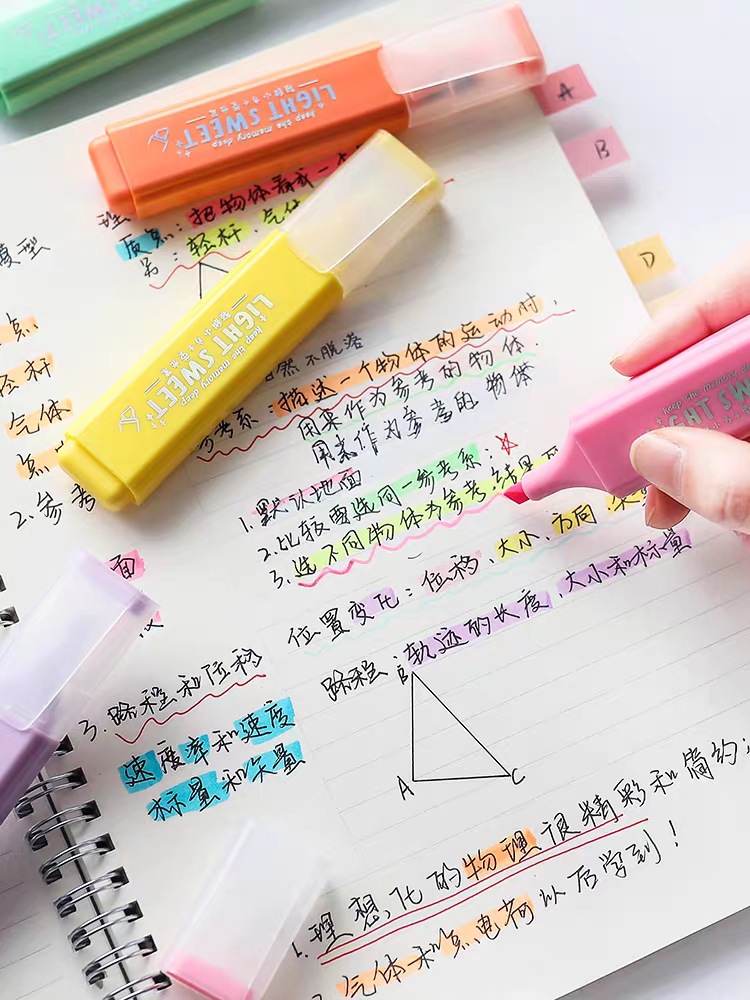 LIGHT SWEET
keep the memory deep
A
B
D
模型
理
质点：把物体看成一个
另：轻杆、气体
LIGHT SWEET
keep the memory deep
自然不脱落
点
轻杆
气体
点
2. 参考
参考系：描述一个物体的运动时，
用来作为参考的物体.
用来作为参考的物体
1. 默认地面
2. 比较要选同一参考系：
3. 选不同物体为参考，结果
keep the memory
LIGHT SWEET
位置变化：位移、大小、方向、
面
路程：轨迹的长度，大小和标量
B
A
C
3. 路程和位移
速度率和速度
标量和矢量
1. 理想化的物理很精彩和简约；
气体和点电荷以后学到！